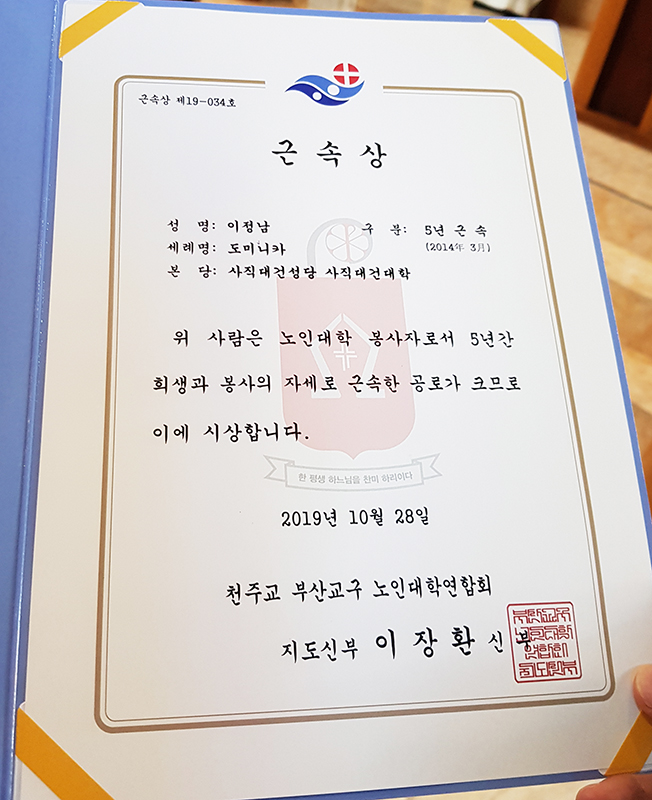 근속상 제19-034호
근 속 상
성 명: 이정남 구 분: 5년 근 속
세례명: 도미니카 (2014年 3月)
본 당: 사직대건성당 사직대건대학
위 사람은 노인대학 봉사자로서 5년간
희생과 봉사의 자세로 근속한 공로가 크므로
이에 시상합니다.
한 평생 하느님을 찬미 하리이다
2019년 10월 28일
천주교 부산교구 노인대학연합회
지도신부 이 장 환 신 부